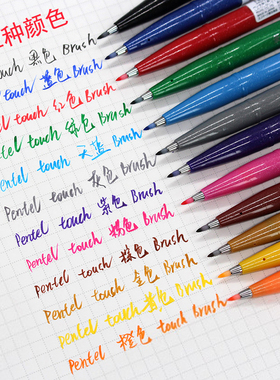 种颜色
touch 黑色 Brush
touch 蓝色 Brush
touch 红色 Brush
Pentel touch 绿色 Brush
Pentel touch 天蓝 Brush
Pentel touch 灰色 Brush
Pentel touch 紫色 Brush
Pentel touch 粉色 Brush
Pentel touch 棕色 Brush
Pentel touch 金色 Brush
Pentel touch 黄色 Brush
Pentel 橙色 touch Brush